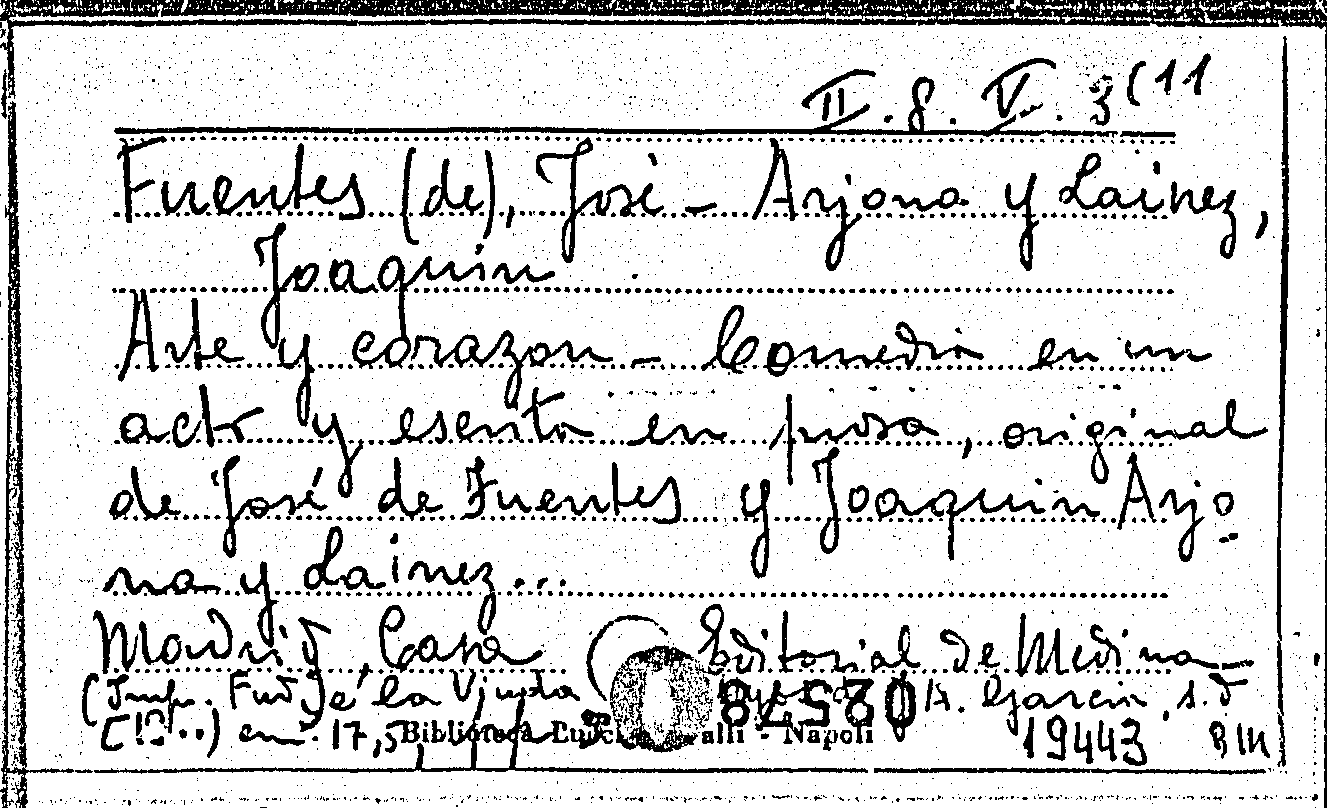 II. 8. V. 3(11
Fuentes (de), José - Arjona y Lainez,
Joaquin
Arte y corazon - Comedia en un
acto y escrita en prosa, original
de José de Fuentes y Joaquin Arjo-
na y Lainez...
Madrid, Casa Editorial de Medina
(Imp. Fud. de la Viuda Garcia, s.d
[18..) cm. 17,5
Biblioteca Lucchesi Palli - Napoli
02578
19443 BIN